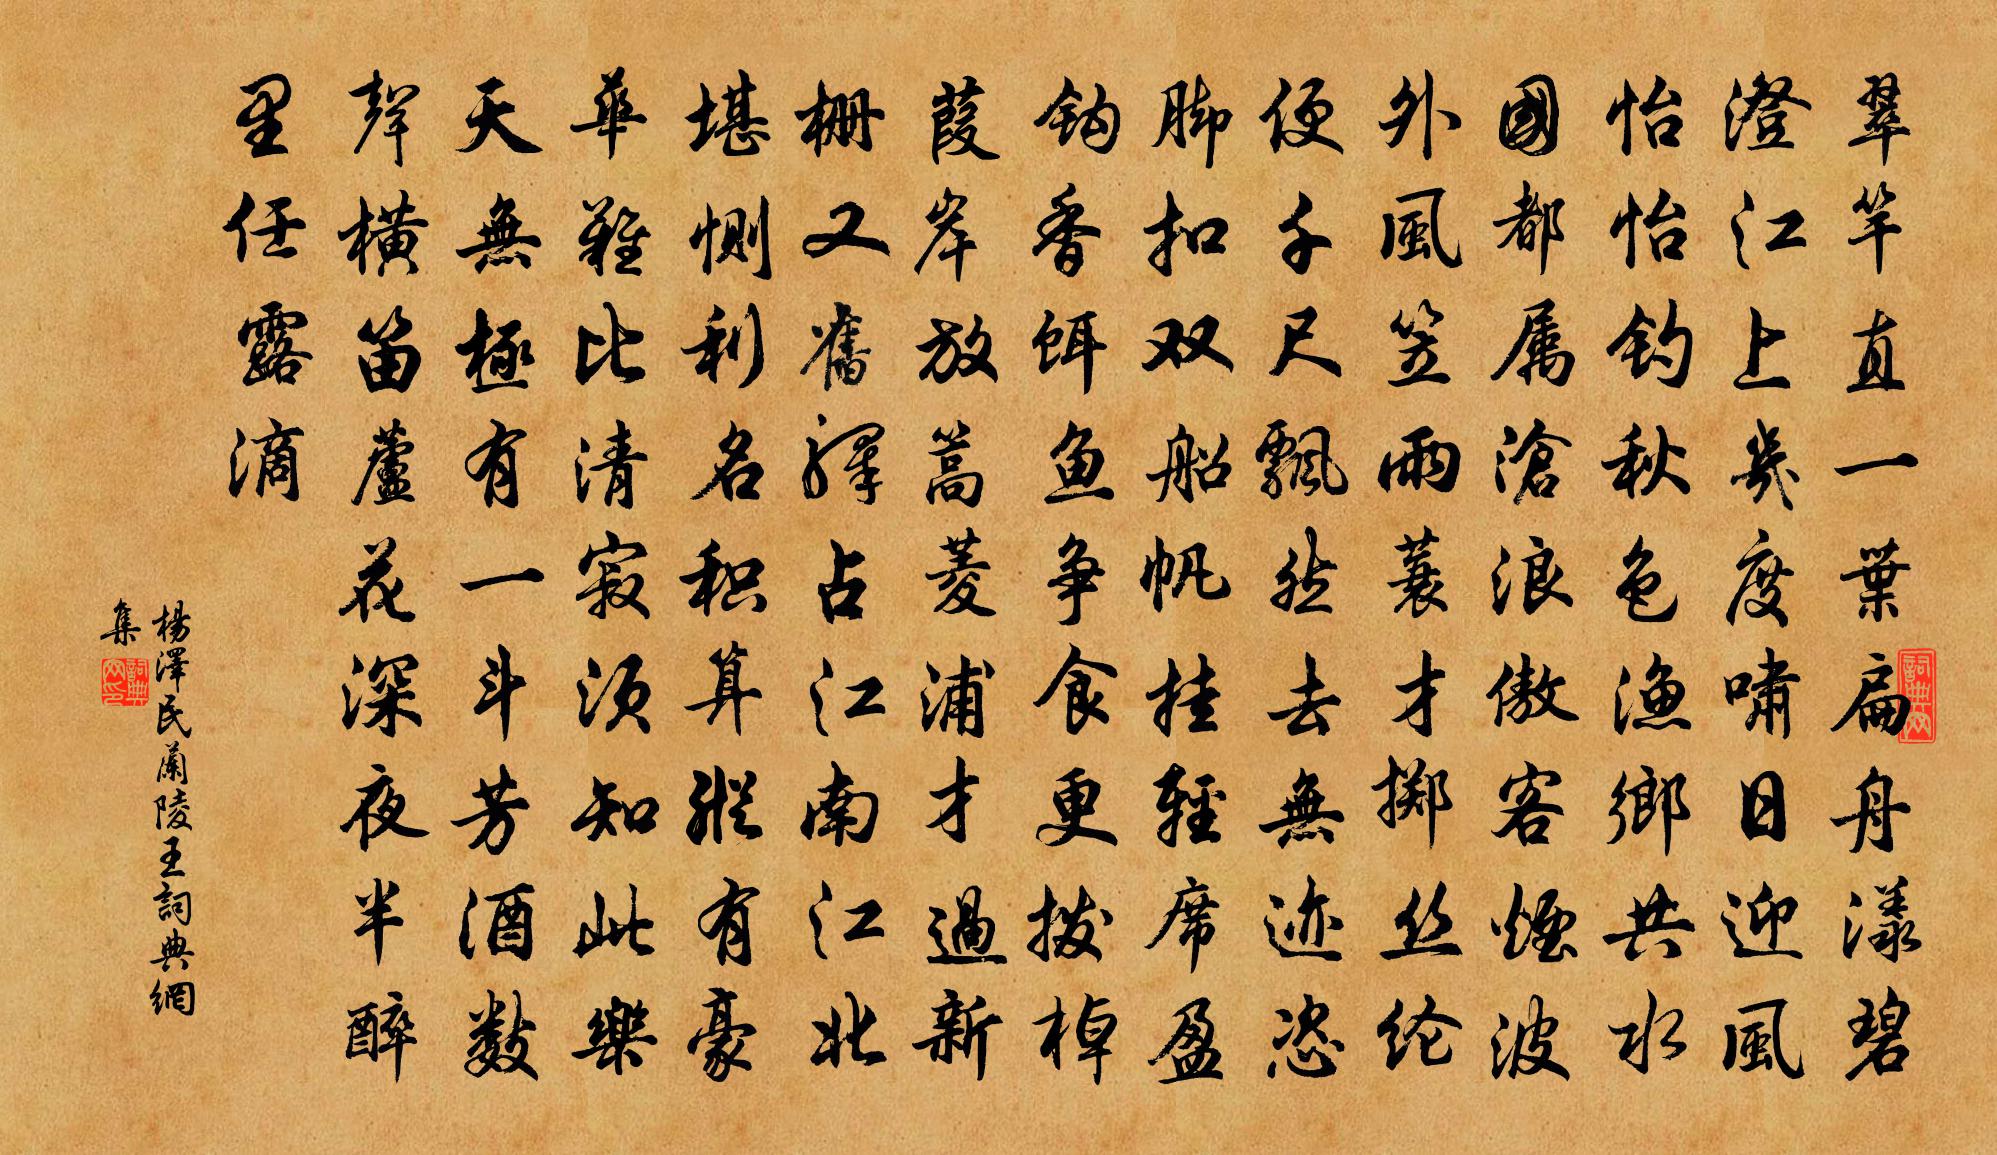 翠竿直一葉扁舟漾碧
澄江上幾度嘯日迎風
怡怡釣秋色漁鄉共水
國都属滄浪傲客煙波
外風笠雨蓑才掷丝纶
便千尺飄然去無迹恣
脚扣双船帆挂輕席盈
鈎香饵魚争食更拨棹
葭岸放篙菱浦才過新
栅又舊驛占江南江北
堪惻利名积算縱有豪
華難比清寂须知此樂
天無極有一斗芳酒数
聲横笛蘆花深夜半醉
里任露滴
楊澤民蘭陵王詞典網
集
詞典网
詞典网印